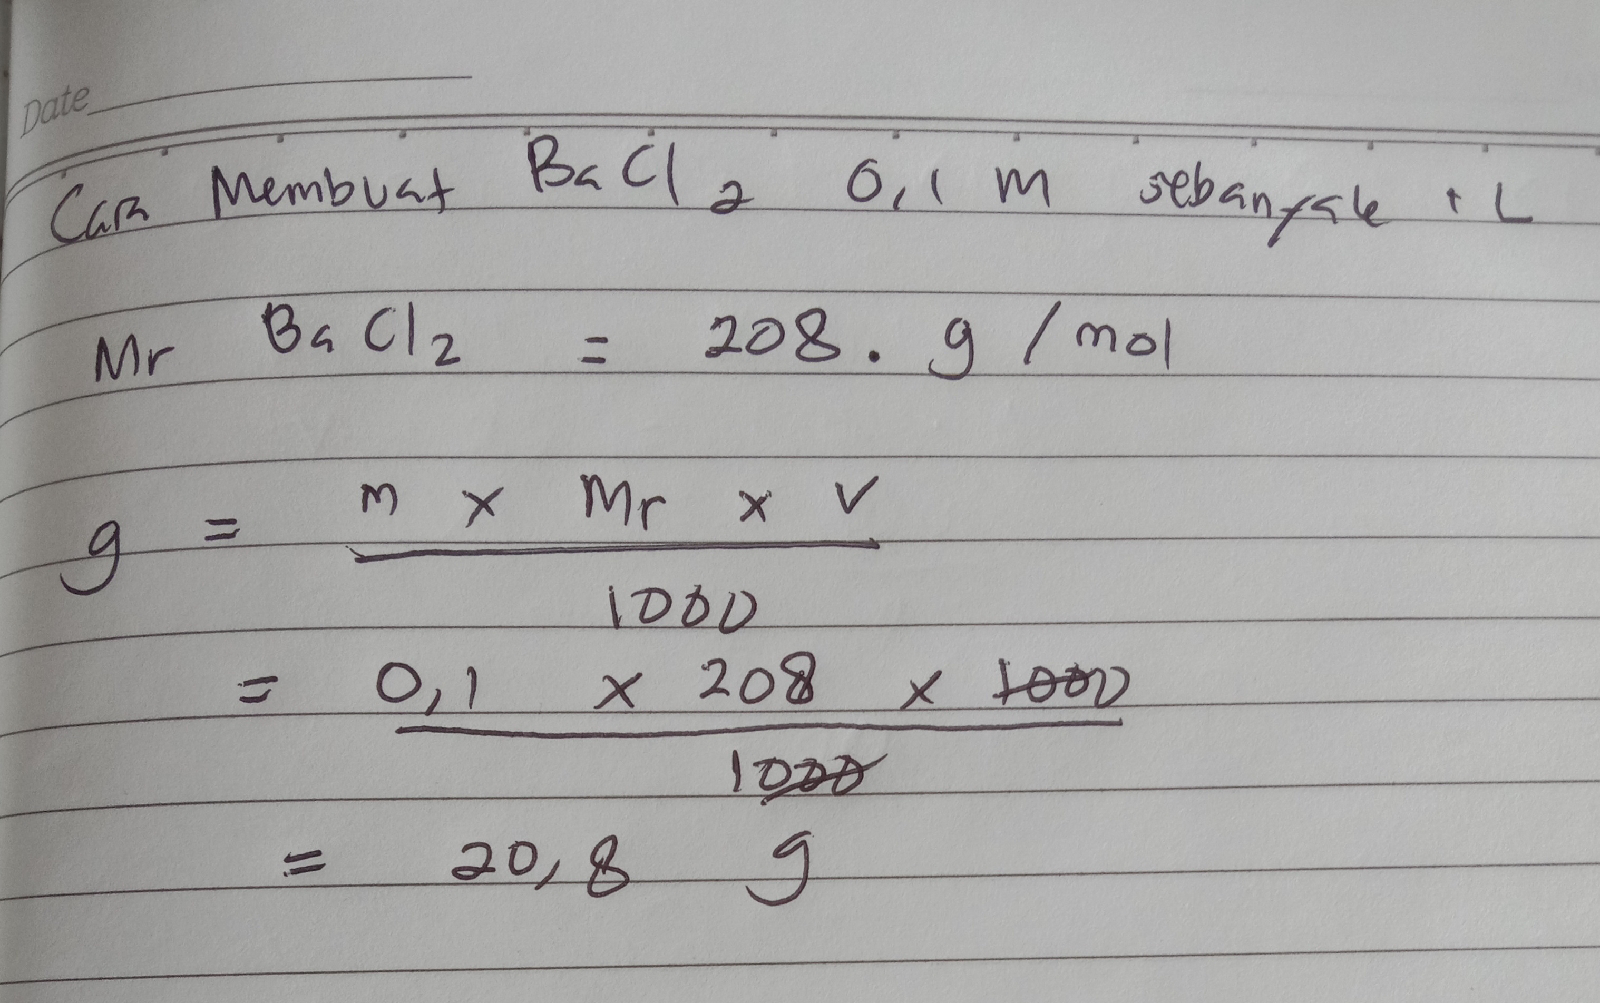 Date
Cara Membuat BaCl2 0,1 M sebanyak 1 L
Mr BaCl2 = 208. g / mol
g = m x Mr x V
1000
= 0,1 x 208 x 1000
1000
= 20,8 g